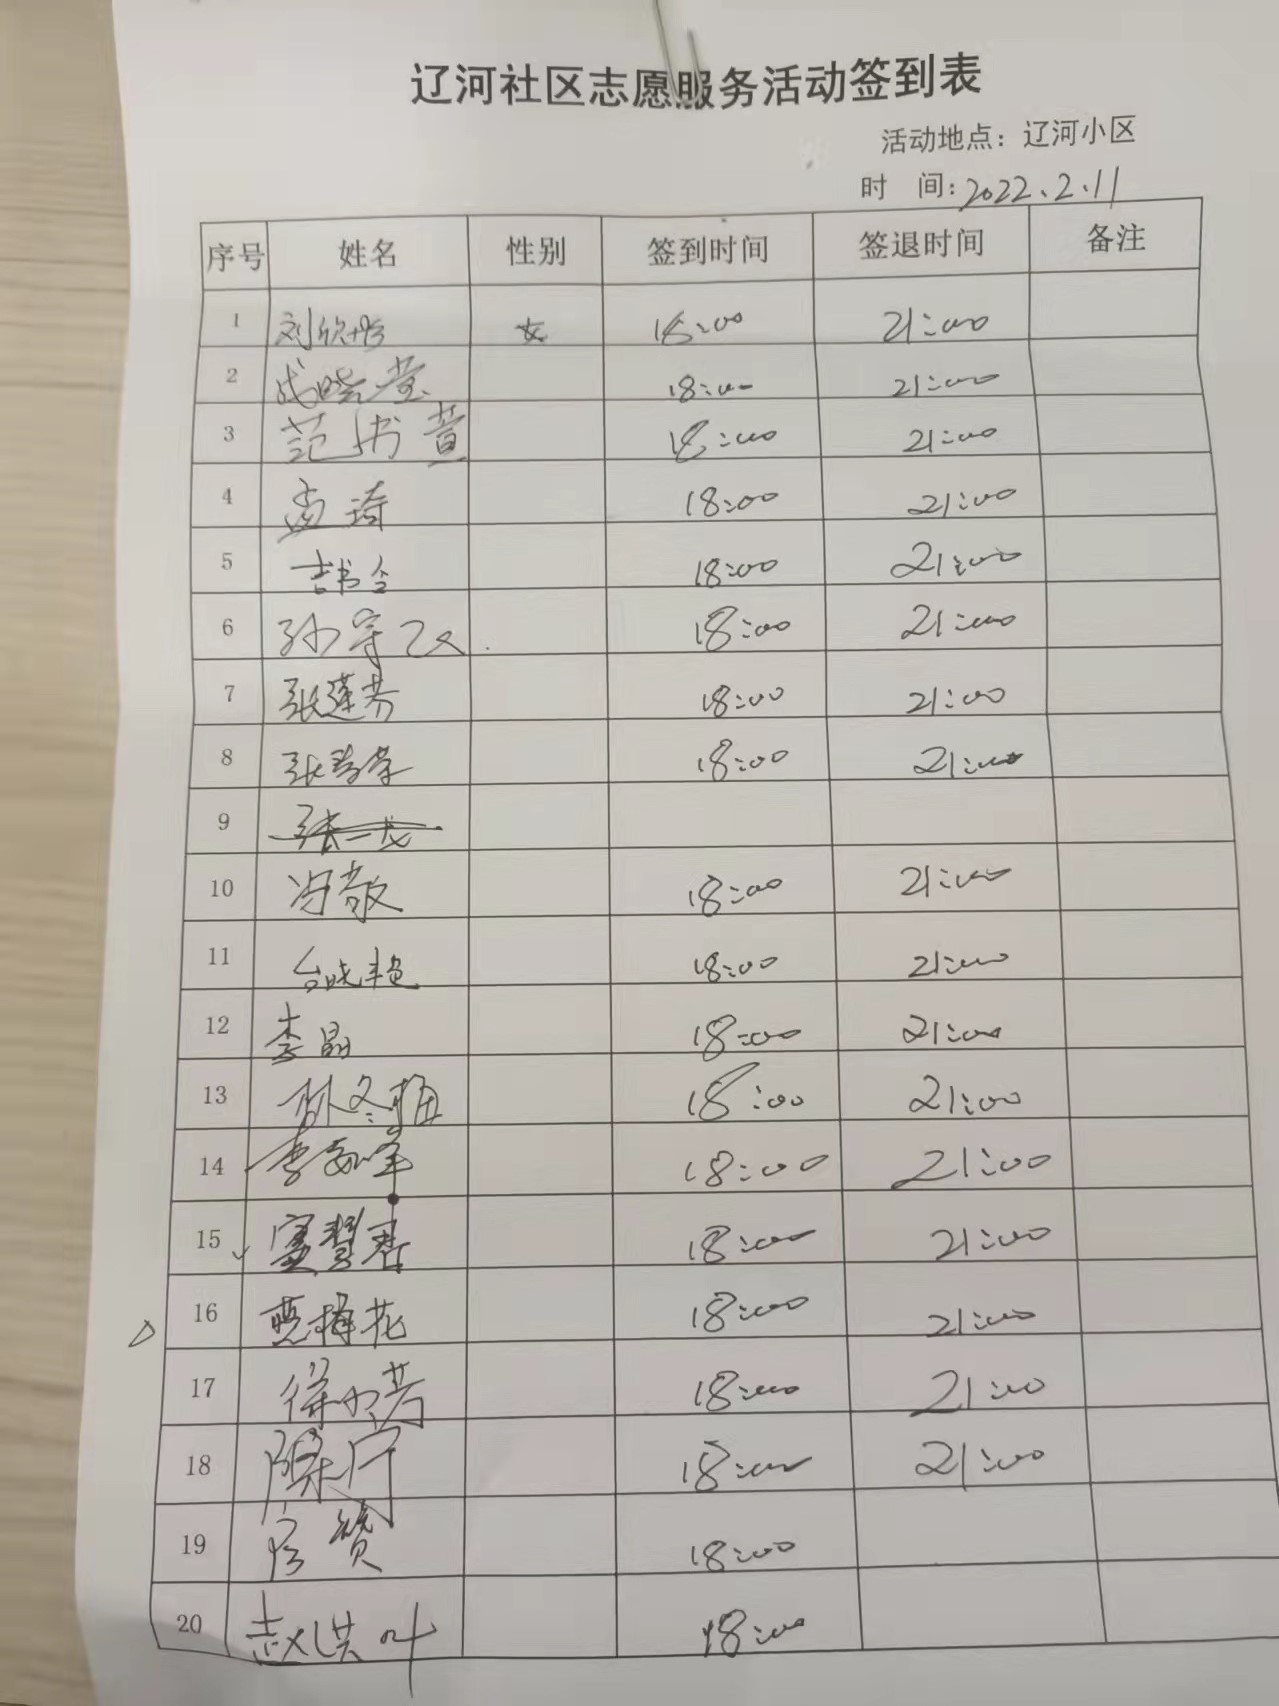 辽河社区志愿服务活动签到表
活动地点：辽河小区
时 间：2022.2.11
序号 姓名 性别 签到时间 签退时间 备注
1 刘欣彤 女 18:00 21:00
2 18:00 21:00
3 范书萱 18:00 21:00
4 孟琦 18:00 21:00
5 吉书会 18:00 21:00
6 孙守义 18:00 21:00
7 张莲芳 18:00 21:00
8 张秀荣 18:00 21:00
9
10 冯敬 18:00 21:00
11 台晓艳 18:00 21:00
12 李晶 18:00 21:00
13 林冬梅 18:00 21:00
14 18:00 21:00
15 18:00 21:00
16 18:00 21:00
17 18:00 21:00
18 18:00 21:00
19 18:00
20 赵洪叶 18:00